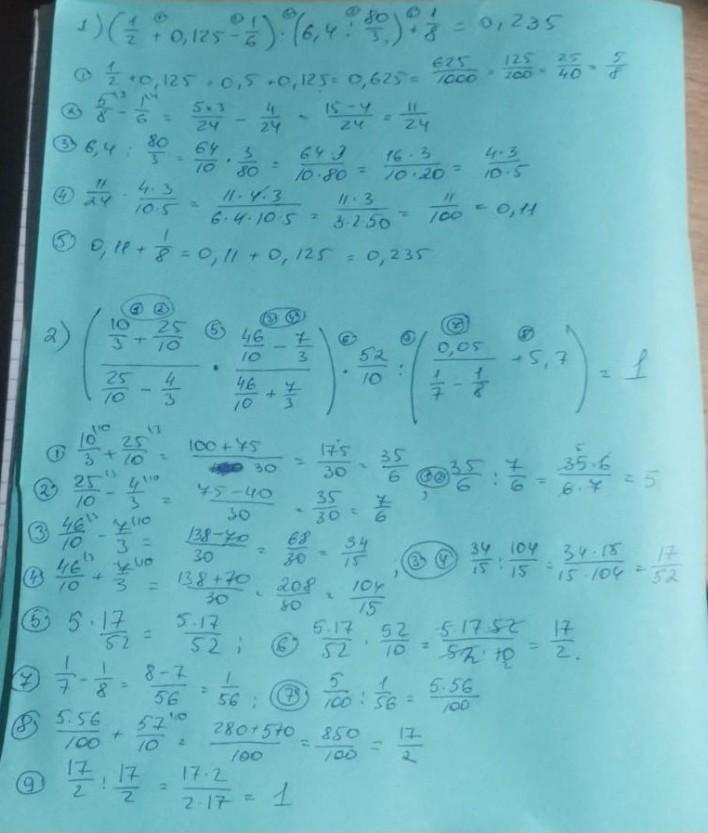 1) (1/2 + 0,125 - 1/6) · (6,4 : 80/3) + 1/8 = 0,235
① 1/2 + 0,125 = 0,5 + 0,125 = 0,625 = 625/1000 = 125/200 = 25/40 = 5/8
② 5/8 - 1/6 = 5×3/24 - 4/24 = 15-4/24 = 11/24
③ 6,4 : 80/3 = 64/10 · 3/80 = 64·3/10·80 = 16·3/10·20 = 4·3/10·5
④ 11/24 · 4·3/10·5 = 11·4·3/6·4·10·5 = 11·3/3·2·50 = 11/100 = 0,11
⑤ 0,11 + 1/8 = 0,11 + 0,125 = 0,235
2) (10/3 + 25/10 / 25/10 - 4/3 · 46/10 - 7/3 / 46/10 + 7/3) · 52/10 : (0,05 / 1/7 - 1/8 + 5,7) = 1
① 10/3 + 25/10 = 100+75/30 = 175/30 = 35/6 ; ①② 35/6 : 7/6 = 35·6/6·7 = 5
② 25/10 - 4/3 = 75-40/30 = 35/30 = 7/6
③ 46/10 - 7/3 = 138-70/30 = 68/30 = 34/15 ; ③④ 34/15 : 104/15 = 34·15/15·104 = 17/52
④ 46/10 + 7/3 = 138+70/30 = 208/30 = 104/15
⑤ 5·17/52 = 5·17/52 ; ⑥ 5·17/52 · 52/10 = 5·17·52/52·10 = 17/2.
⑦ 1/7 - 1/8 = 8-7/56 = 1/56 ; ⑦' 5/100 : 1/56 = 5·56/100
⑧ 5·56/100 + 57/10 = 280+570/100 = 850/100 = 17/2
⑨ 17/2 : 17/2 = 17·2/2·17 = 1